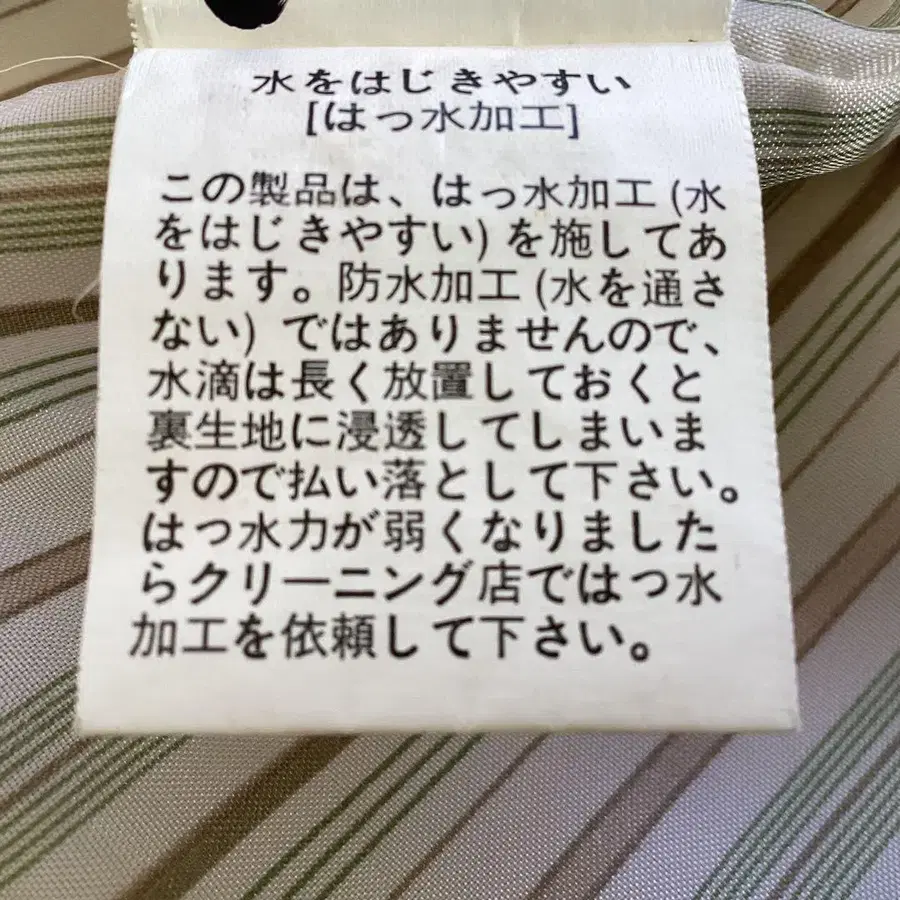 水をはじきやすい
[はっ水加工]
この製品は、はっ水加工(水
をはじきやすい)を施してあ
ります。防水加工(水を通さ
ない)ではありませんので、
水滴は長く放置しておくと
裏生地に浸透してしまいま
すので払い落として下さい。
はっ水力が弱くなりました
らクリーニング店ではっ水
加工を依頼して下さい。